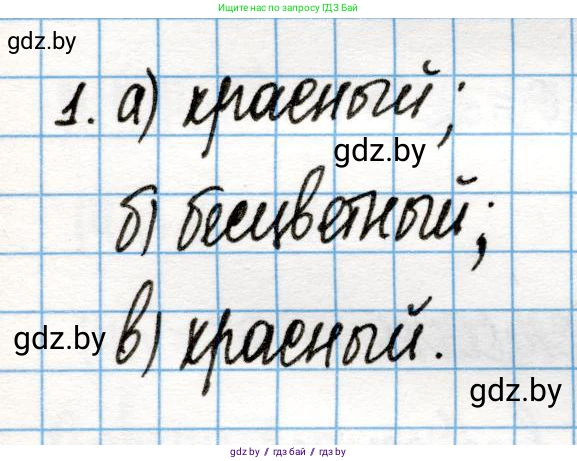 Ищите нас по запросу ГДЗ Бай
gdz.by
1. а) красный;
gdz.by
б) бесцветный;
gdz.by
в) красный.
gdz.by
gdz.by / гдз бай / gdz.by